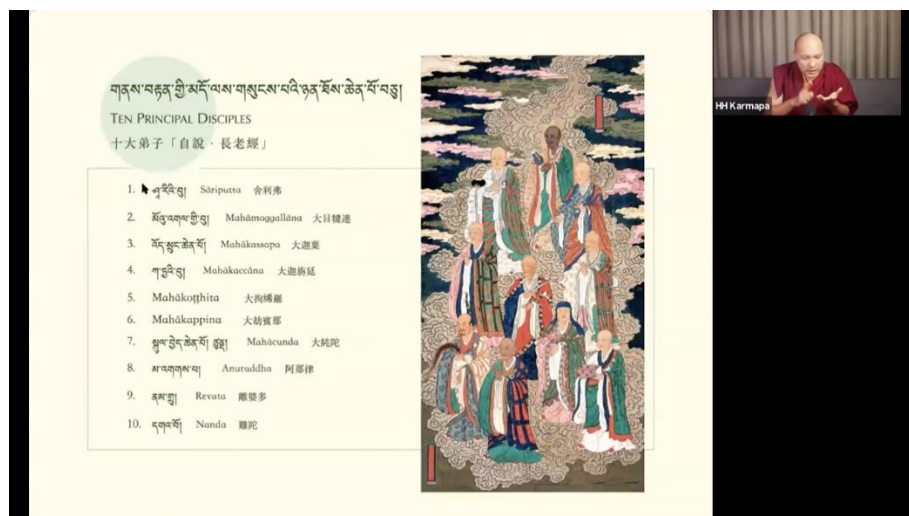 གནས་བརྟན་གྱི་མདོ་ལས་གསུངས་པའི་ཉན་ཐོས་ཆེན་པོ་བཅུ།
TEN PRINCIPAL DISCIPLES
十大弟子「自說．長老經」
1. ཤཱ་རིའི་བུ། Sāriputta 舍利弗
2. མོའུ་འགལ་གྱི་བུ། Mahāmoggallāna 大目犍連
3. འོད་སྲུང་ཆེན་པོ། Mahākassapa 大迦葉
4. ཀ་ཏྱའི་བུ། Mahākaccāna 大迦旃延
5. Mahākoṭṭhita 大拘絺羅
6. Mahākappina 大劫賓那
7. སྐུལ་བྱེད་ཆེན་པོ། ཙུནྡ། Mahācunda 大純陀
8. མ་འགགས་པ། Anuruddha 阿那律
9. ནམ་གྲུ། Revata 離婆多
10. དགའ་བོ། Nanda 難陀
HH Karmapa